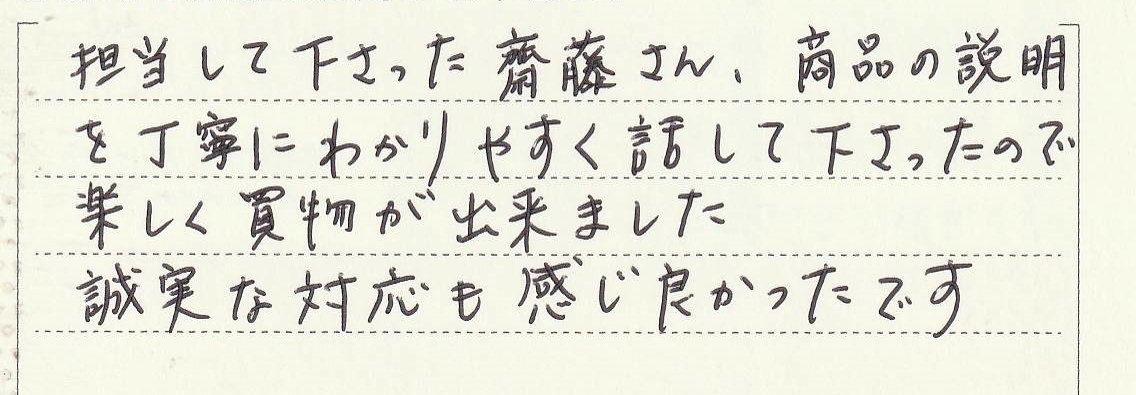 担当して下さった齋藤さん、商品の説明
を丁寧にわかりやすく話して下さったので
楽しく買物が出来ました
誠実な対応も感じ良かったです